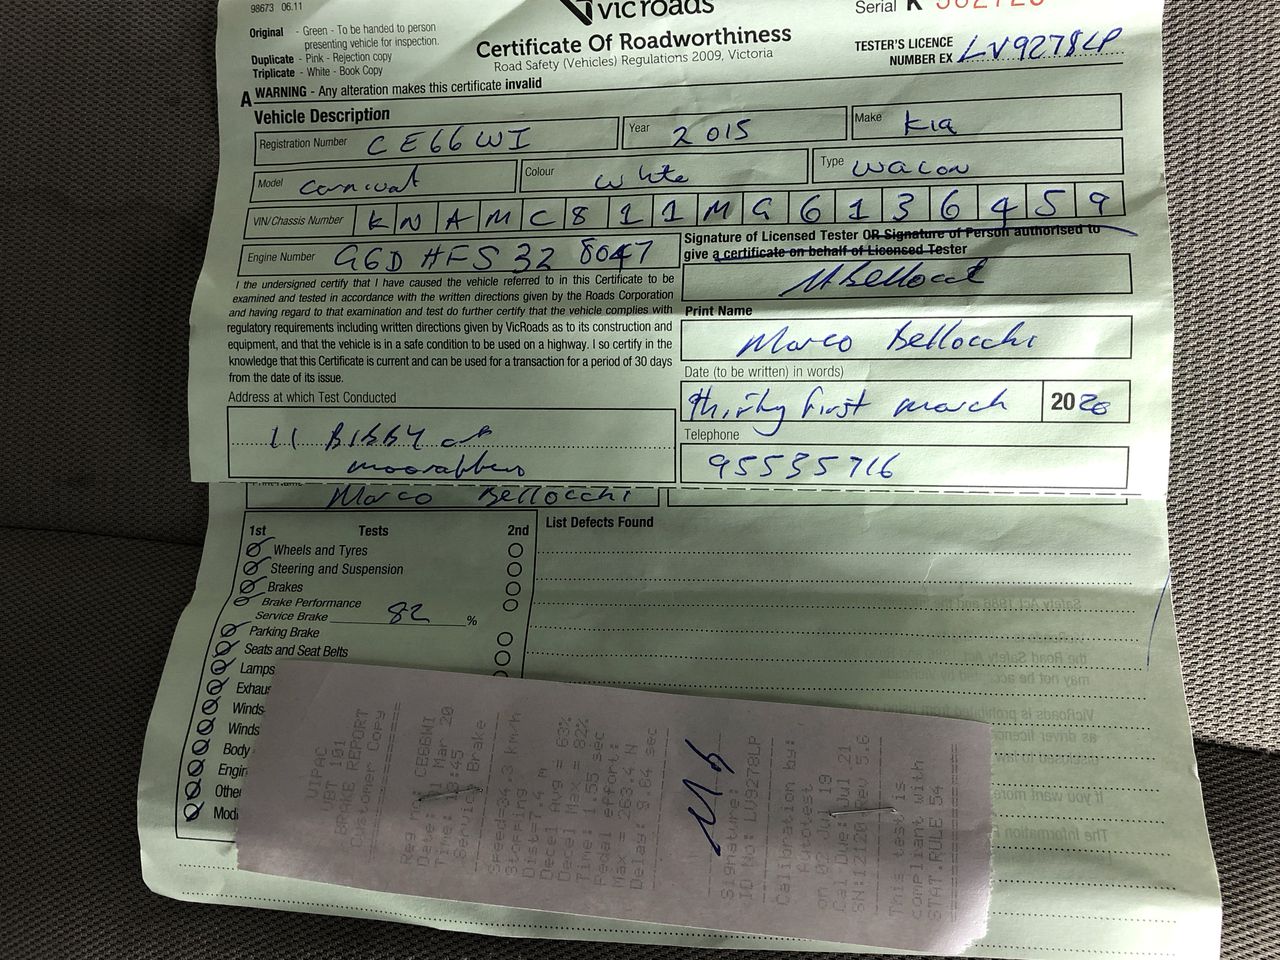 98673 06.11
vic roads
Serial K
Original - Green - To be handed to person
presenting vehicle for inspection.
Duplicate - Pink - Rejection copy
Triplicate - White - Book Copy
Certificate Of Roadworthiness
Road Safety (Vehicles) Regulations 2009, Victoria
TESTER'S LICENCE
NUMBER EX LV9278LP
A WARNING - Any alteration makes this certificate invalid
Vehicle Description
Registration Number CE66WI
Year 2015
Make Kia
Model Carnival
Colour White
Type Wagon
VIN/Chassis Number K N A M C 8 1 1 M G 6 1 3 6 4 5 9
Engine Number G6DHFS328047
Signature of Licensed Tester OR Signature of Person authorised to
give a certificate on behalf of Licensed Tester
I the undersigned certify that I have caused the vehicle referred to in this Certificate to be
examined and tested in accordance with the written directions given by the Roads Corporation
and having regard to that examination and test do further certify that the vehicle complies with
regulatory requirements including written directions given by VicRoads as to its construction and
equipment, and that the vehicle is in a safe condition to be used on a highway. I so certify in the
knowledge that this Certificate is current and can be used for a transaction for a period of 30 days
from the date of its issue.
Print Name
Marco Bellocchi
Date (to be written) in words)
thirty first march 2020
Address at which Test Conducted
11 BIBBY ct
moorabbin
Telephone
95535716
Marco Bellocchi
1st Tests 2nd
List Defects Found
Wheels and Tyres
Steering and Suspension
Brakes
Brake Performance
Service Brake 82 %
Parking Brake
Seats and Seat Belts
Lamps
Exhaus
Winds
Winds
Body
Engin
Other
Modi
VIPAC
VBT 101
BRAKE REPORT
Customer Copy
Reg no: CE66WI
Date: 31 Mar 20
Time: :45
Service Brake
Speed=34.3 km/h
Stopping
Dist=7.4 M
Decel Avg = 63%
Decel Max = 82%
Time: 1.55 sec
Pedal effort:
Max = 263.4 N
Delay: 9.64 sec
Signature:
ID No: LV9278LP
Calibration by:
Autotest
on 02 Jul 19
Cal Due: Jul 21
SN:12120 Rev 5.6
This test is
compliant with
STAT.RULE 54